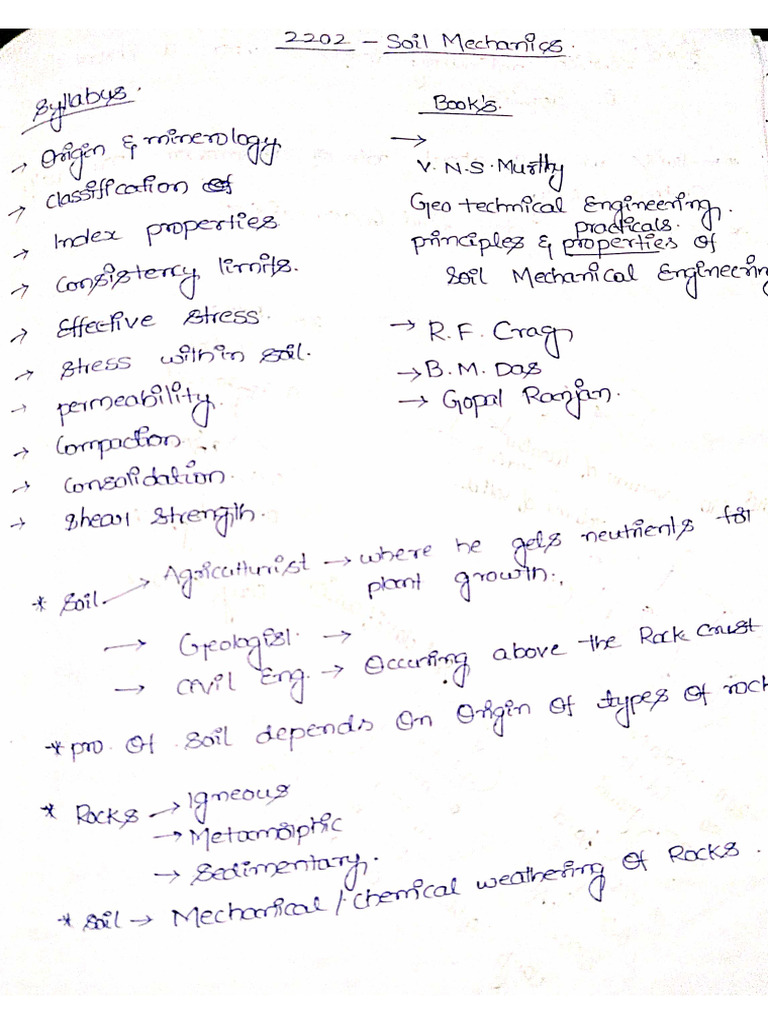 2202 - Soil Mechanics.
Syllabus.
→ Origin & minerology
→ Classification of
→ Index properties
→ Consistency limits.
→ Effective stress.
→ stress within soil.
→ permeability.
→ Compaction
→ Consolidation.
→ Shear strength.
Book's.
→
V. N. S. Murthy
Geo technical Engineering.
practicals.
principles & properties of
Soil Mechanical Engineering
→ R. F. Crag
→ B. M. Das
→ Gopal Ranjan.
* Soil → Agriculturist → where he gets neutrients for
plant growth.
→ Geologist →
→ Civil Eng. → Occuring above the Rock crust
* pro. of soil depends on origin of types of rock
* Rocks → Igneous
→ Metamorphic
→ Sedimentary.
* Soil → Mechanical / Chemical weathering of Rocks.